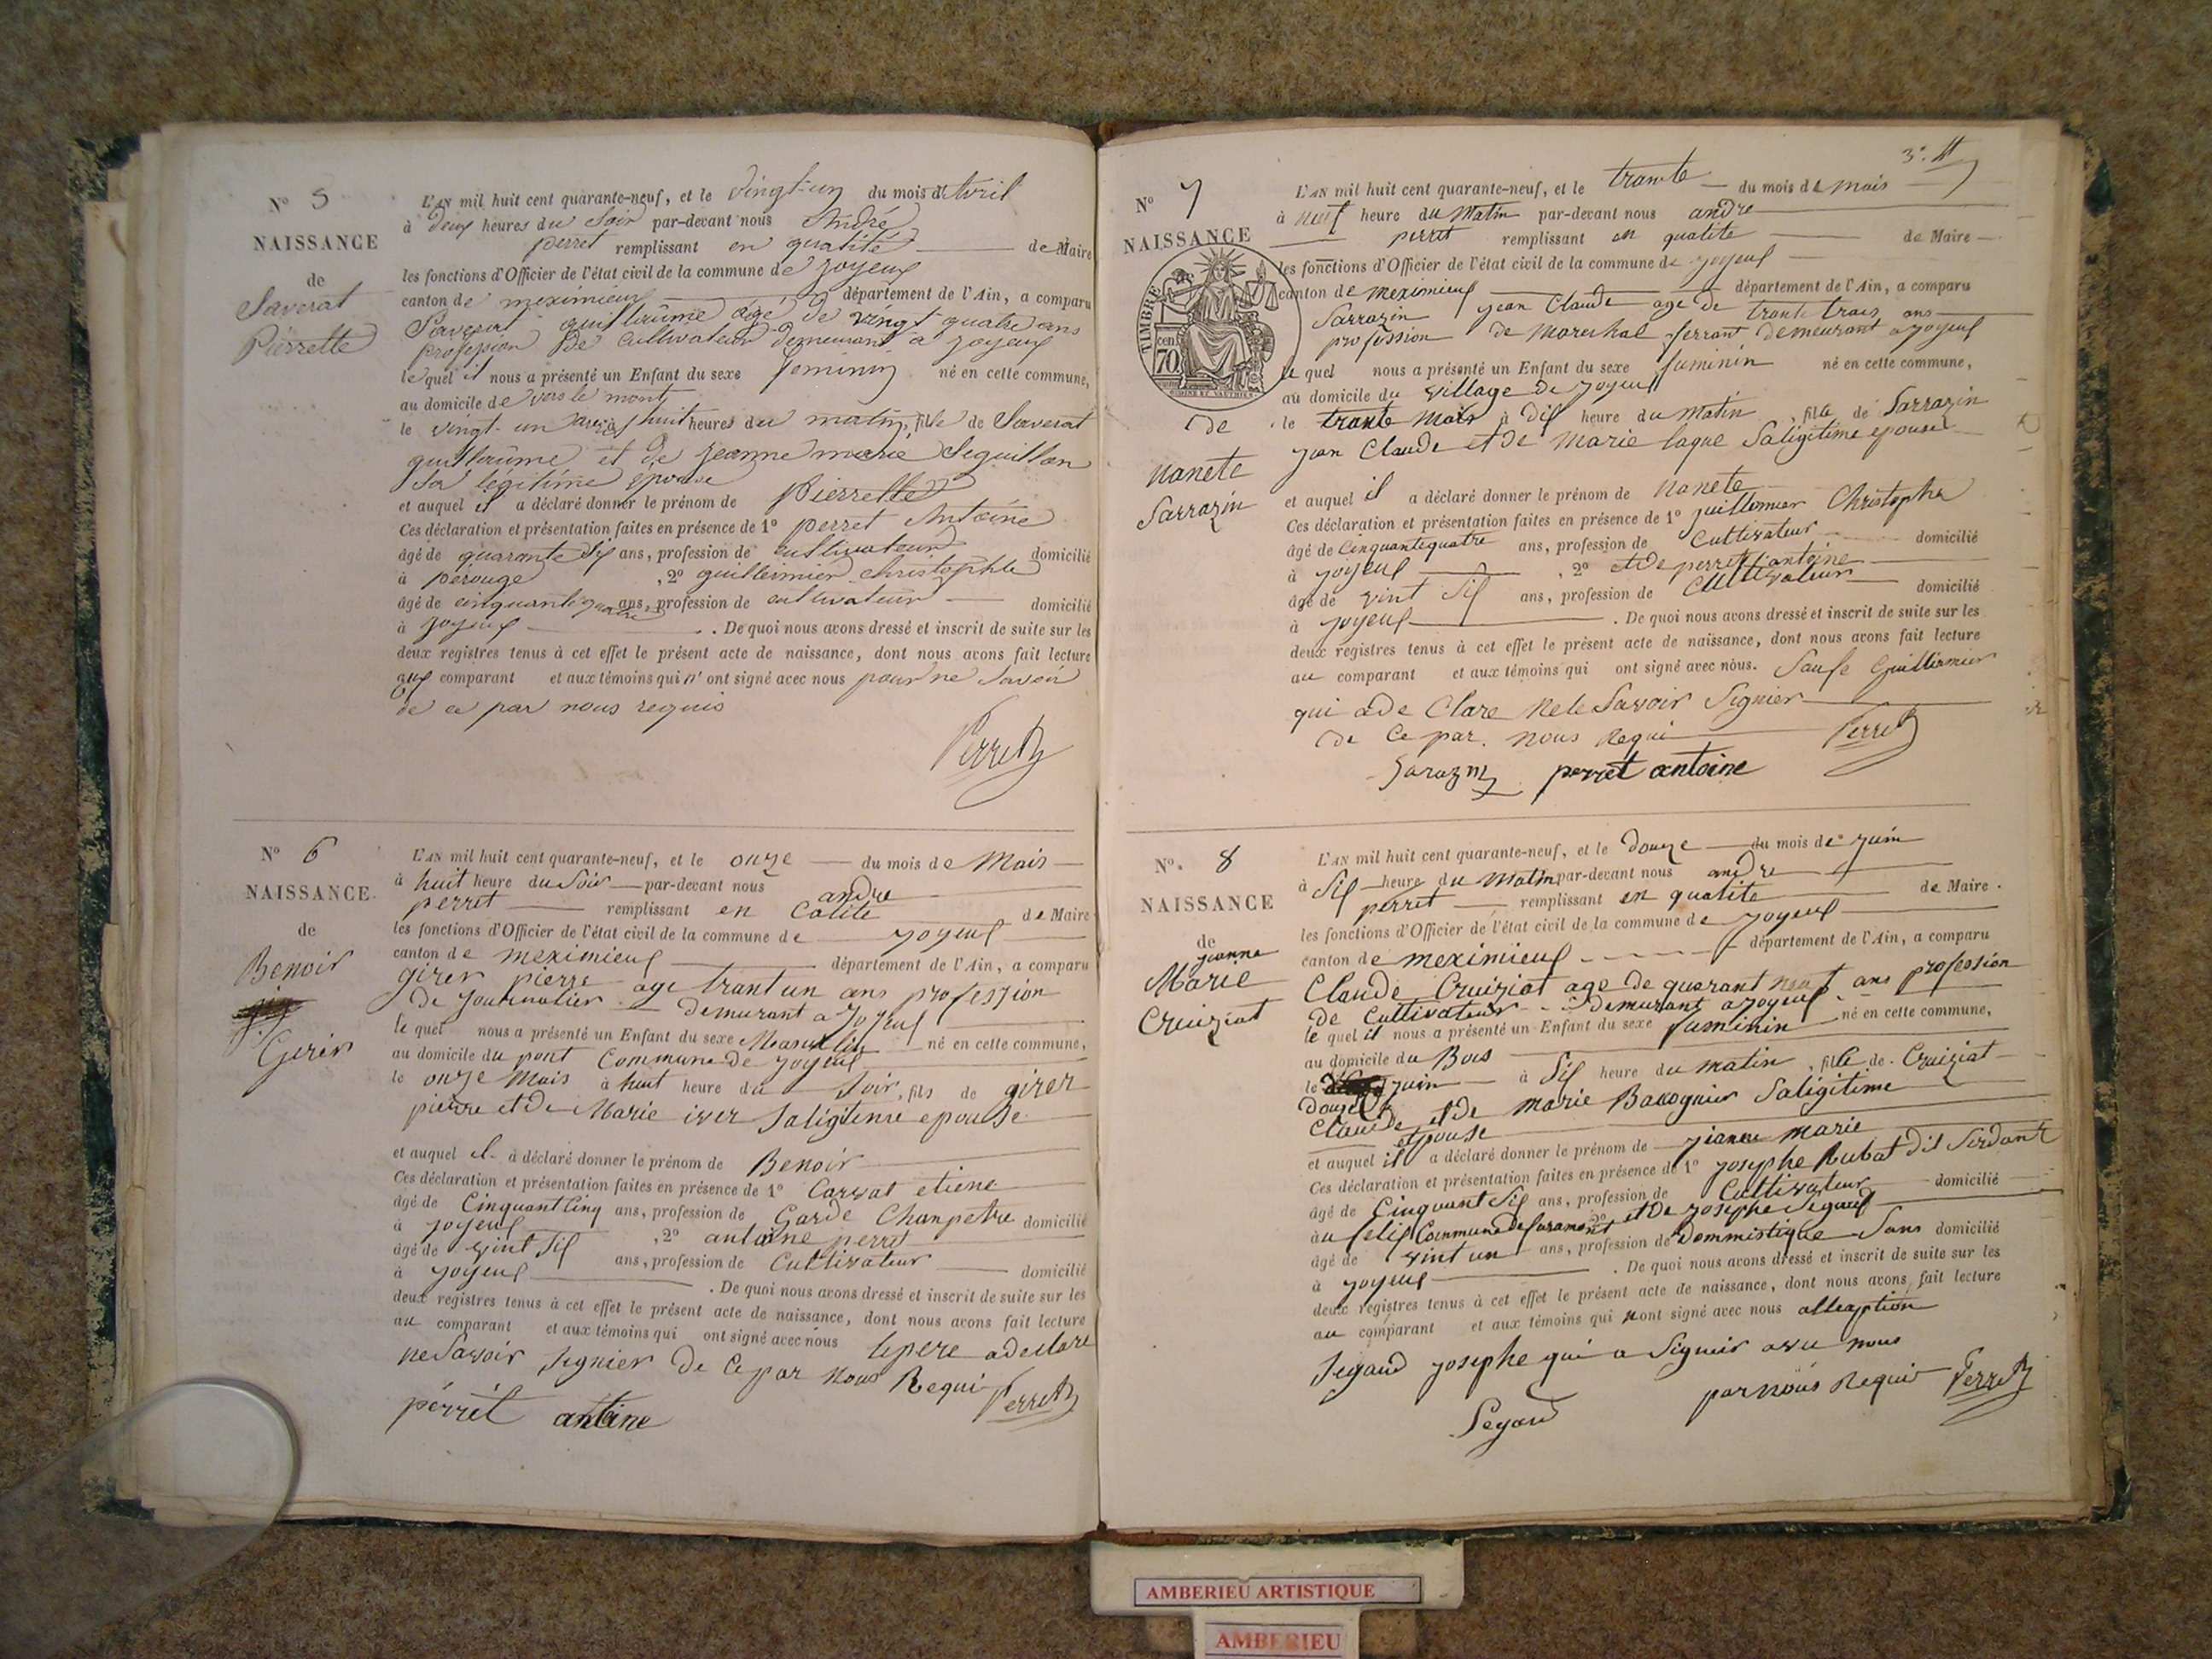 N° 5
NAISSANCE
de
Saverat
Pierrette
L'AN mil huit cent quarante-neuf, et le vingt-un du mois d'Avril
à deux heures du Soir par-devant nous André
perret remplissant en qualité de Maire
les fonctions d'Officier de l'état civil de la commune de joyeux
canton de meximieux département de l'Ain, a comparu
Saverat guillaûme âgé de vingt quatre ans
profession de Cultivateur demeurant à joyeux
lequel il nous a présenté un Enfant du sexe feminin né en cette commune,
au domicile de vers le mont
le vingt-un à huit heures du matin, fille de Saverat
guillaûme et de jeanne marie Seguillon
Sa légitime épouse
et auquel il a déclaré donner le prénom de pierrette
Ces déclaration et présentation faites en présence de 1° perret Antoine
âgé de quarante six ans, profession de cultivateur domicilié
à pérouge, 2° guillermier christophle
âgé de cinquante quatre ans, profession de cultivateur domicilié
à joyeux . De quoi nous avons dressé et inscrit de suite sur les
deux registres tenus à cet effet le présent acte de naissance, dont nous avons fait lecture
aux comparant et aux témoins qui n'ont signé avec nous pour ne Savoir
de ce par nous requis
Perret
N° 6
NAISSANCE
de
Benoir
Girer
L'AN mil huit cent quarante-neuf, et le onze du mois de Mais
à huit heure du Soir par-devant nous andre
perret remplissant en Calite de Maire
les fonctions d'Officier de l'état civil de la commune de joyeux
canton de meximieux département de l'Ain, a comparu
girer pierre age trant un ans profession
de journalier demurant a Joyeux
le quel nous a présenté un Enfant du sexe Masculin né en cette commune,
au domicile du pont Commune de joyeux
le onze Mais à huit heure du Soir, fils de girer
pierre et de Marie iver Saligitime epouse
et auquel il a déclaré donner le prénom de Benoir
Ces déclaration et présentation faites en présence de 1° Carvat etiene
âgé de Cinquant Cinq ans, profession de Garde Chanpetre domicilié
à joyeux, 2° antoine perret
âgé de vint Six ans, profession de Cultivateur domicilié
à joyeux . De quoi nous avons dressé et inscrit de suite sur les
deux registres tenus à cet effet le présent acte de naissance, dont nous avons fait lecture
au comparant et aux témoins qui ont signé avec nous le pere a declare
ne Savoir Signier de Ce par Nous Requi
Perret
pérrét antoine
3e. ft
N° 7
NAISSANCE
TIMBRE
cen 70
de
Nanete
Sarrazin
L'AN mil huit cent quarante-neuf, et le trante du mois de mais
à neuf heure du Matin par-devant nous andre
perret remplissant en qualite de Maire
les fonctions d'Officier de l'état civil de la commune de joyeux
canton de meximieux département de l'Ain, a comparu
Sarrazin jean Claude age de trante trais ans
profession de Marechal ferrant demeurant a joyeux
le quel nous a présenté un Enfant du sexe faminin né en cette commune,
au domicile du village de joyeux
le trante Mais à dix heure du Matin, fille de Sarrazin
jean Claude et de Marie laque Saligitime epouse
et auquel il a déclaré donner le prénom de Nanete
Ces déclaration et présentation faites en présence de 1° guillermier Christophe
âgé de Cinquante quatre ans, profession de Cultivateur domicilié
à joyeux, 2° et de perret antoine
âgé de vint Six ans, profession de Cultivateur domicilié
à joyeux . De quoi nous avons dressé et inscrit de suite sur les
deux registres tenus à cet effet le présent acte de naissance, dont nous avons fait lecture
au comparant et aux témoins qui ont signé avec nous. Saufe Guillermier
qui a de Clare Ne le Savoir Signier
de Ce par nous Requi
Perret
Sarazin perret antoine
N°. 8
NAISSANCE
de
jeanne
Marie
Cruiziat
L'AN mil huit cent quarante-neuf, et le douze du mois de juin
à Six heure du Matin par-devant nous andre
perret remplissant en qualite de Maire.
les fonctions d'Officier de l'état civil de la commune de joyeux
canton de meximieux département de l'Ain, a comparu
Claude Cruiziat age de quarant neuf ans profession
de Cultivateur demurant a joyeux
le quel il nous a présenté un Enfant du sexe faminin né en cette commune,
au domicile du Bois
le juin à Six heure du matin, fille de Cruiziat
douze
Claude et de marie Bacognier Saligitime
epouse
et auquel il a déclaré donner le prénom de jianne marie
Ces déclaration et présentation faites en présence de 1° josephe Rubat dit
âgé de Cinquant Six ans, profession de Cultivateur domicilié
à Commune de faramant 2° et de josephe Segaud
âgé de vint un ans, profession de Dommistique Sans domicilié
à joyeux . De quoi nous avons dressé et inscrit de suite sur les
deux registres tenus à cet effet le présent acte de naissance, dont nous avons fait lecture
au comparant et aux témoins qui nont signé avec nous
Segaud josephe qui a Signier avu nous
par nous Requir Perret
Segaud
AMBERIEU ARTISTIQUE
AMBERIEU